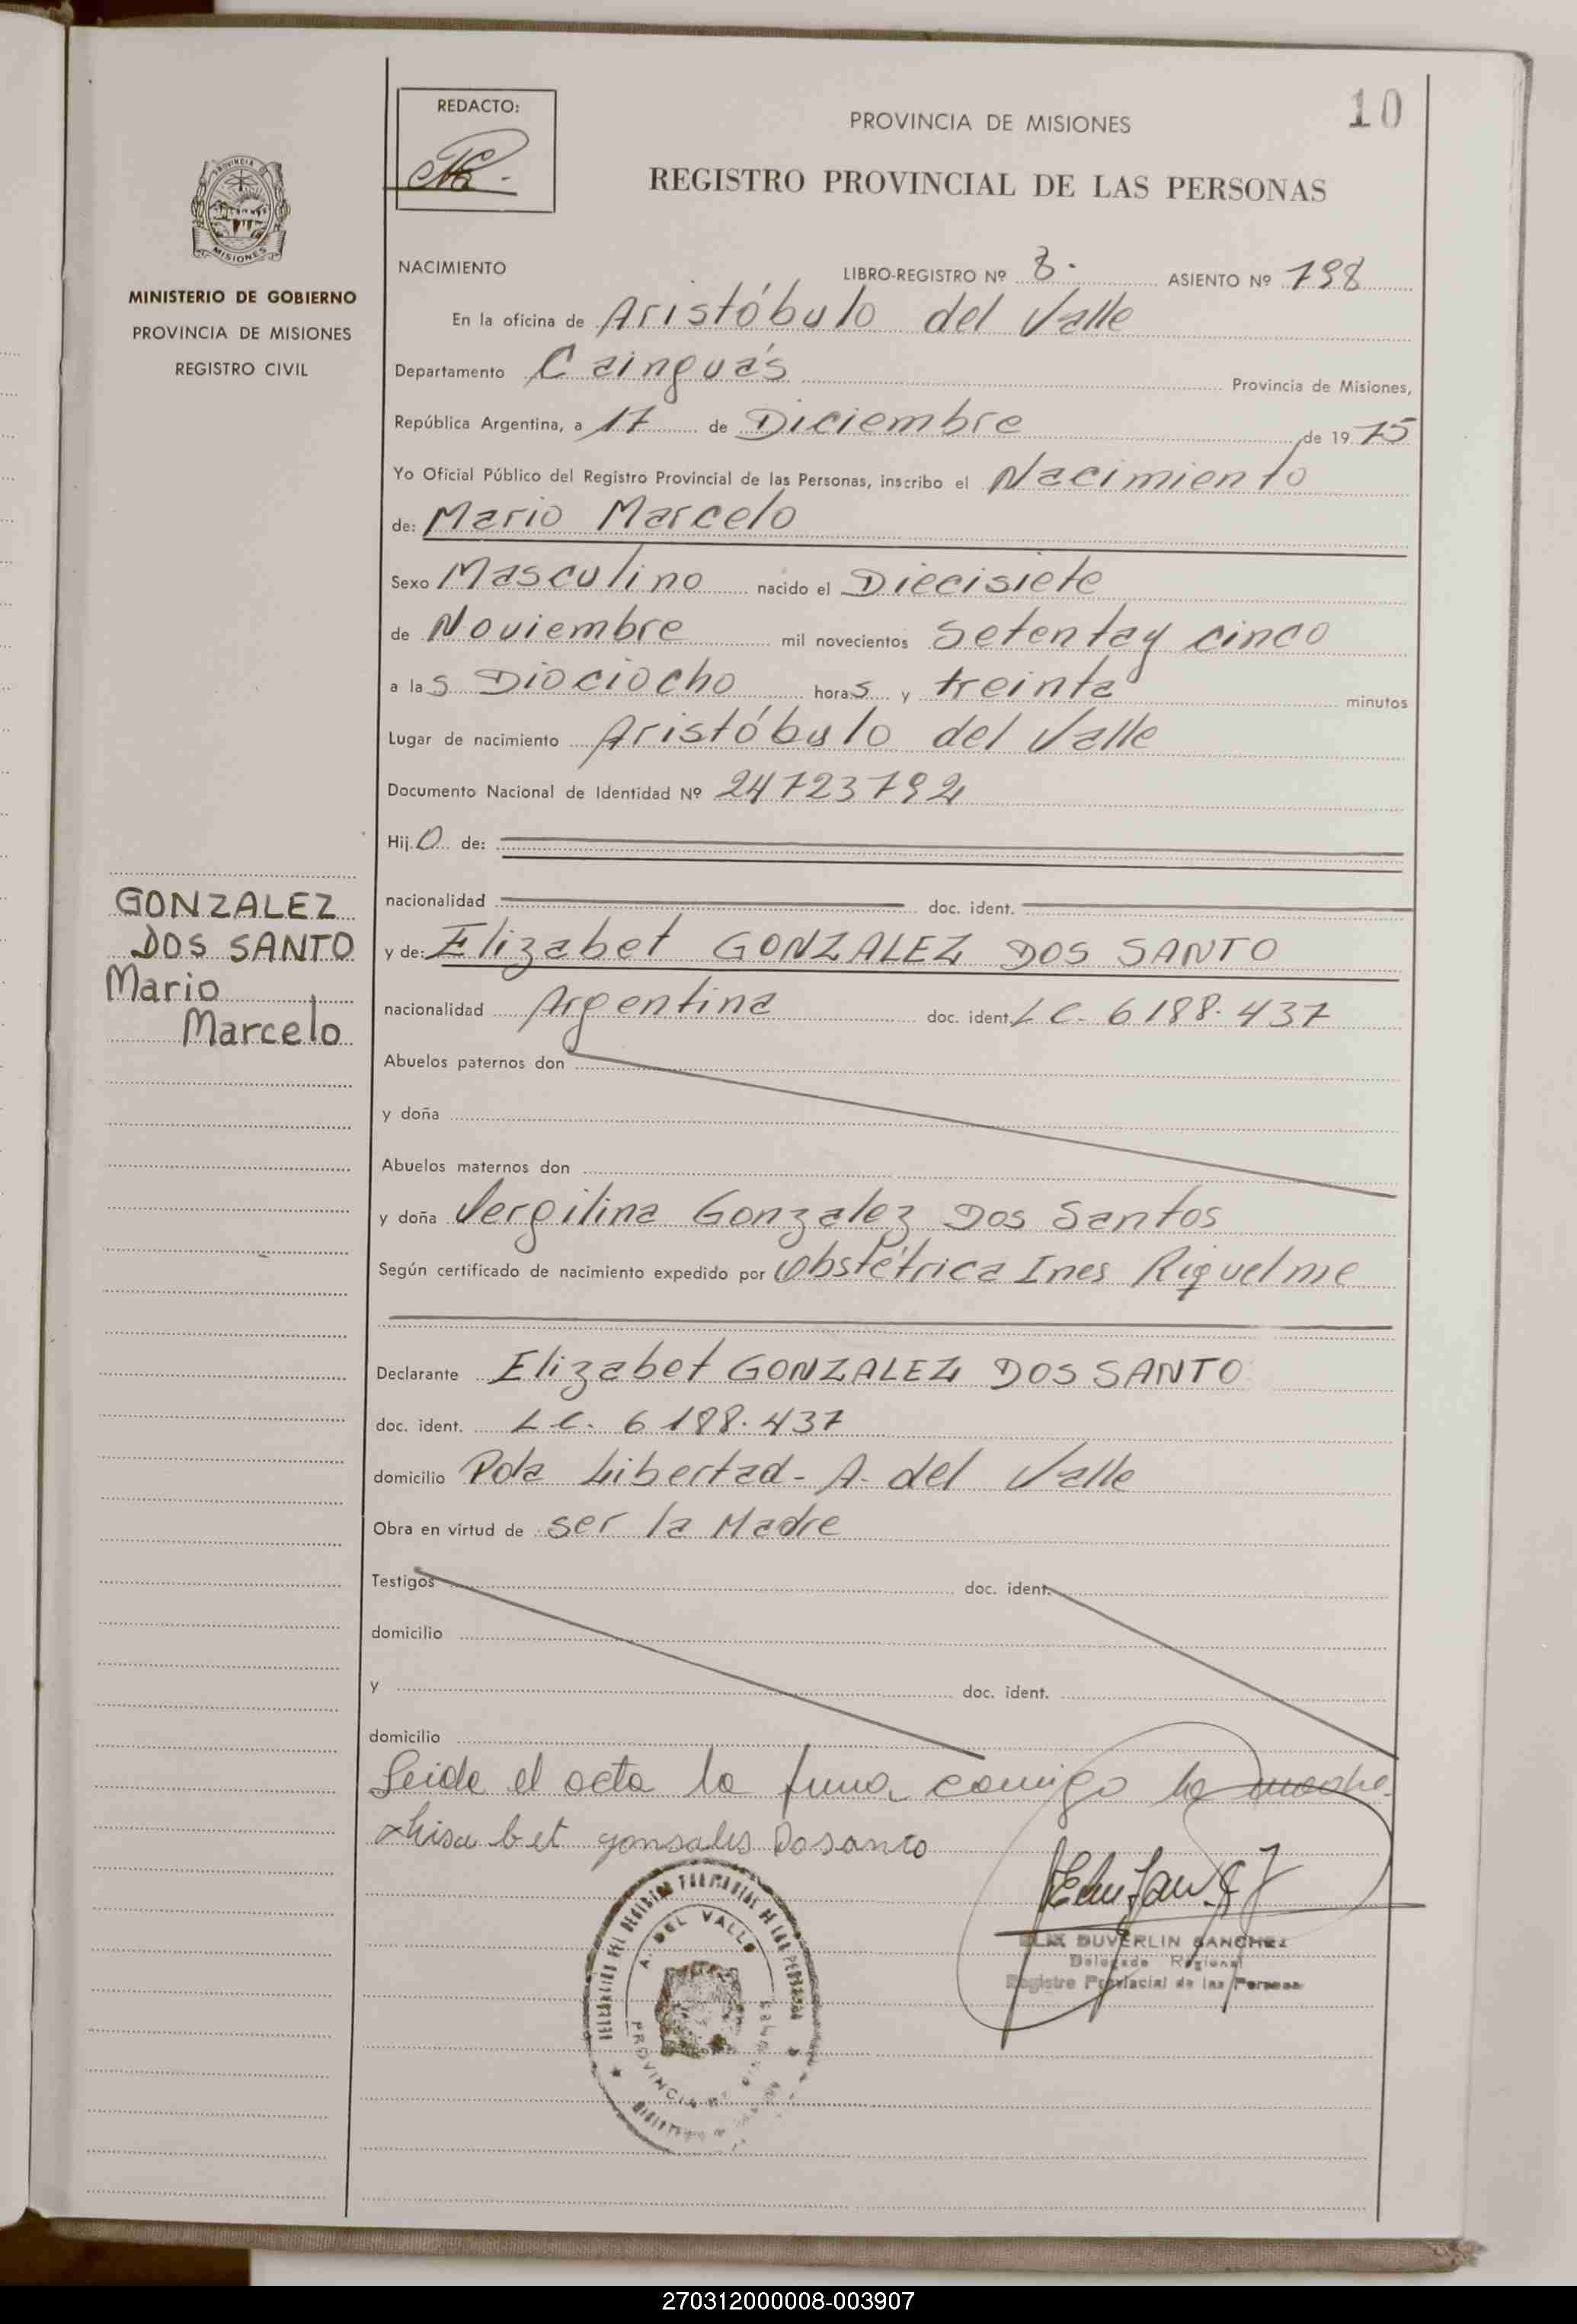 10
REDACTO:
PROVINCIA DE MISIONES
REGISTRO PROVINCIAL DE LAS PERSONAS
PROVINCIA
MISIONES
MINISTERIO DE GOBIERNO
PROVINCIA DE MISIONES
REGISTRO CIVIL
NACIMIENTO LIBRO-REGISTRO Nº 8. ASIENTO Nº 798
En la oficina de Aristóbulo del Valle
Departamento Cainguás Provincia de Misiones,
República Argentina, a 17 de Diciembre de 1975
Yo Oficial Público del Registro Provincial de las Personas, inscribo el Nacimiento
de: Mario Marcelo
Sexo Masculino nacido el Diecisiete
de Noviembre mil novecientos setentay cinco
a las Diociocho horas y treinta minutos
Lugar de nacimiento Aristóbulo del Valle
Documento Nacional de Identidad Nº 24723794
Hijo de:
nacionalidad doc. ident.
GONZALEZ
DOS SANTO
Mario
Marcelo
y de: Elizabet GONZALEZ DOS SANTO
nacionalidad Argentina doc. ident. LC. 6188.437
Abuelos paternos don
y doña
Abuelos maternos don
y doña Vergilina Gonzalez Dos Santos
Según certificado de nacimiento expedido por Obstétrica Ines Riquelme
Declarante Elizabet GONZALEZ DOS SANTO
doc. ident. LC. 6188.437
domicilio Pda Libertad - A. del Valle
Obra en virtud de ser la Madre
Testigos doc. ident.
domicilio
y doc. ident.
domicilio
Leida el acta la firma comigo la madre.
gonsales Dosanto
A. DEL VALLE
PROVINCIA
DUVERLIN SANCHEZ
Delegado Regional
Registro Provincial de las Personas
270312000008-003907